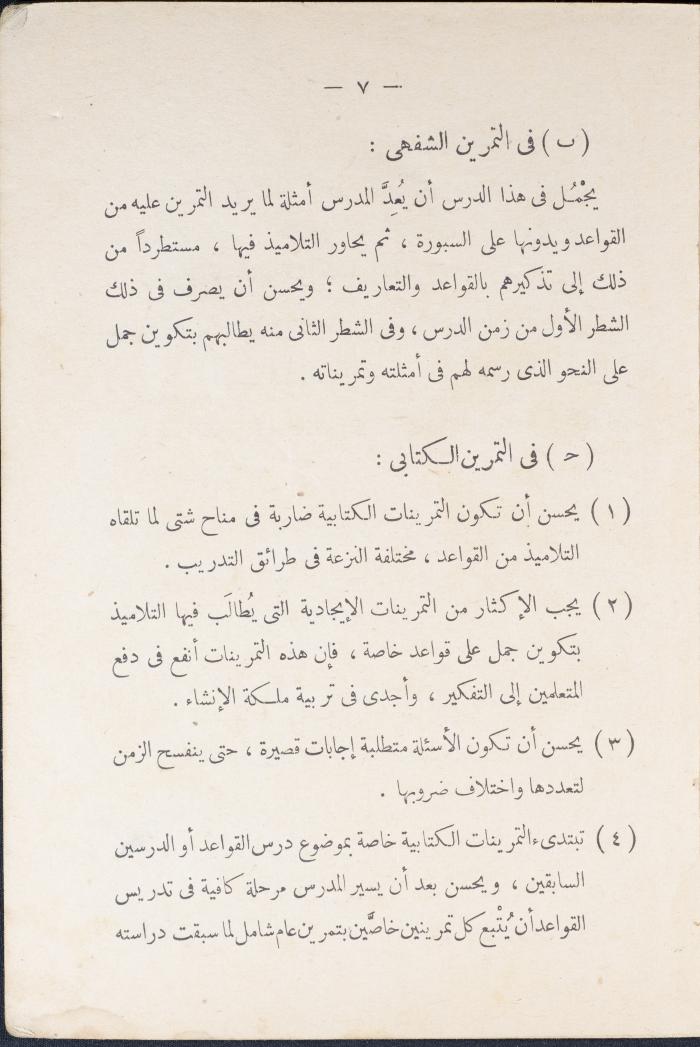 — ٧ —
(ب) فى التمرين الشفهى :
يجْمُل فى هذا الدرس أن يُعِدَّ المدرس أمثلة لما يريد التمرين عليه من
القواعد ويدونها على السبورة ، ثم يحاور التلاميذ فيها ، مستطرداً من
ذلك إلى تذكيرهم بالقواعد والتعاريف ؛ ويحسن أن يصرف فى ذلك
الشطر الأول من زمن الدرس ، وفى الشطر الثانى منه يطالبهم بتكوين جمل
على النحو الذى رسمه لهم فى أمثلته وتمريناته .
(ح) فى التمرين الكتابى :
(١) يحسن أن تكون التمرينات الكتابية ضاربة فى مناح شتى لما تلقاه
التلاميذ من القواعد ، مختلفة النزعة فى طرائق التدريب .
(٢) يجب الإكثار من التمرينات الإيجادية التى يُطالَب فيها التلاميذ
بتكوين جمل على قواعد خاصة ، فإن هذه التمرينات أنفع فى دفع
المتعلمين إلى التفكير ، وأجدى فى تربية ملكة الإنشاء .
(٣) يحسن أن تكون الأسئلة متطلبة إجابات قصيرة ، حتى ينفسح الزمن
لتعددها واختلاف ضروبها .
(٤) تبتدىء التمرينات الكتابية خاصة بموضوع درس القواعد أو الدرسين
السابقين ، ويحسن بعد أن يسير المدرس مرحلة كافية فى تدريس
القواعد أن يُتْبع كل تمرينين خاصَّين بتمرين عام شامل لما سبقت دراسته